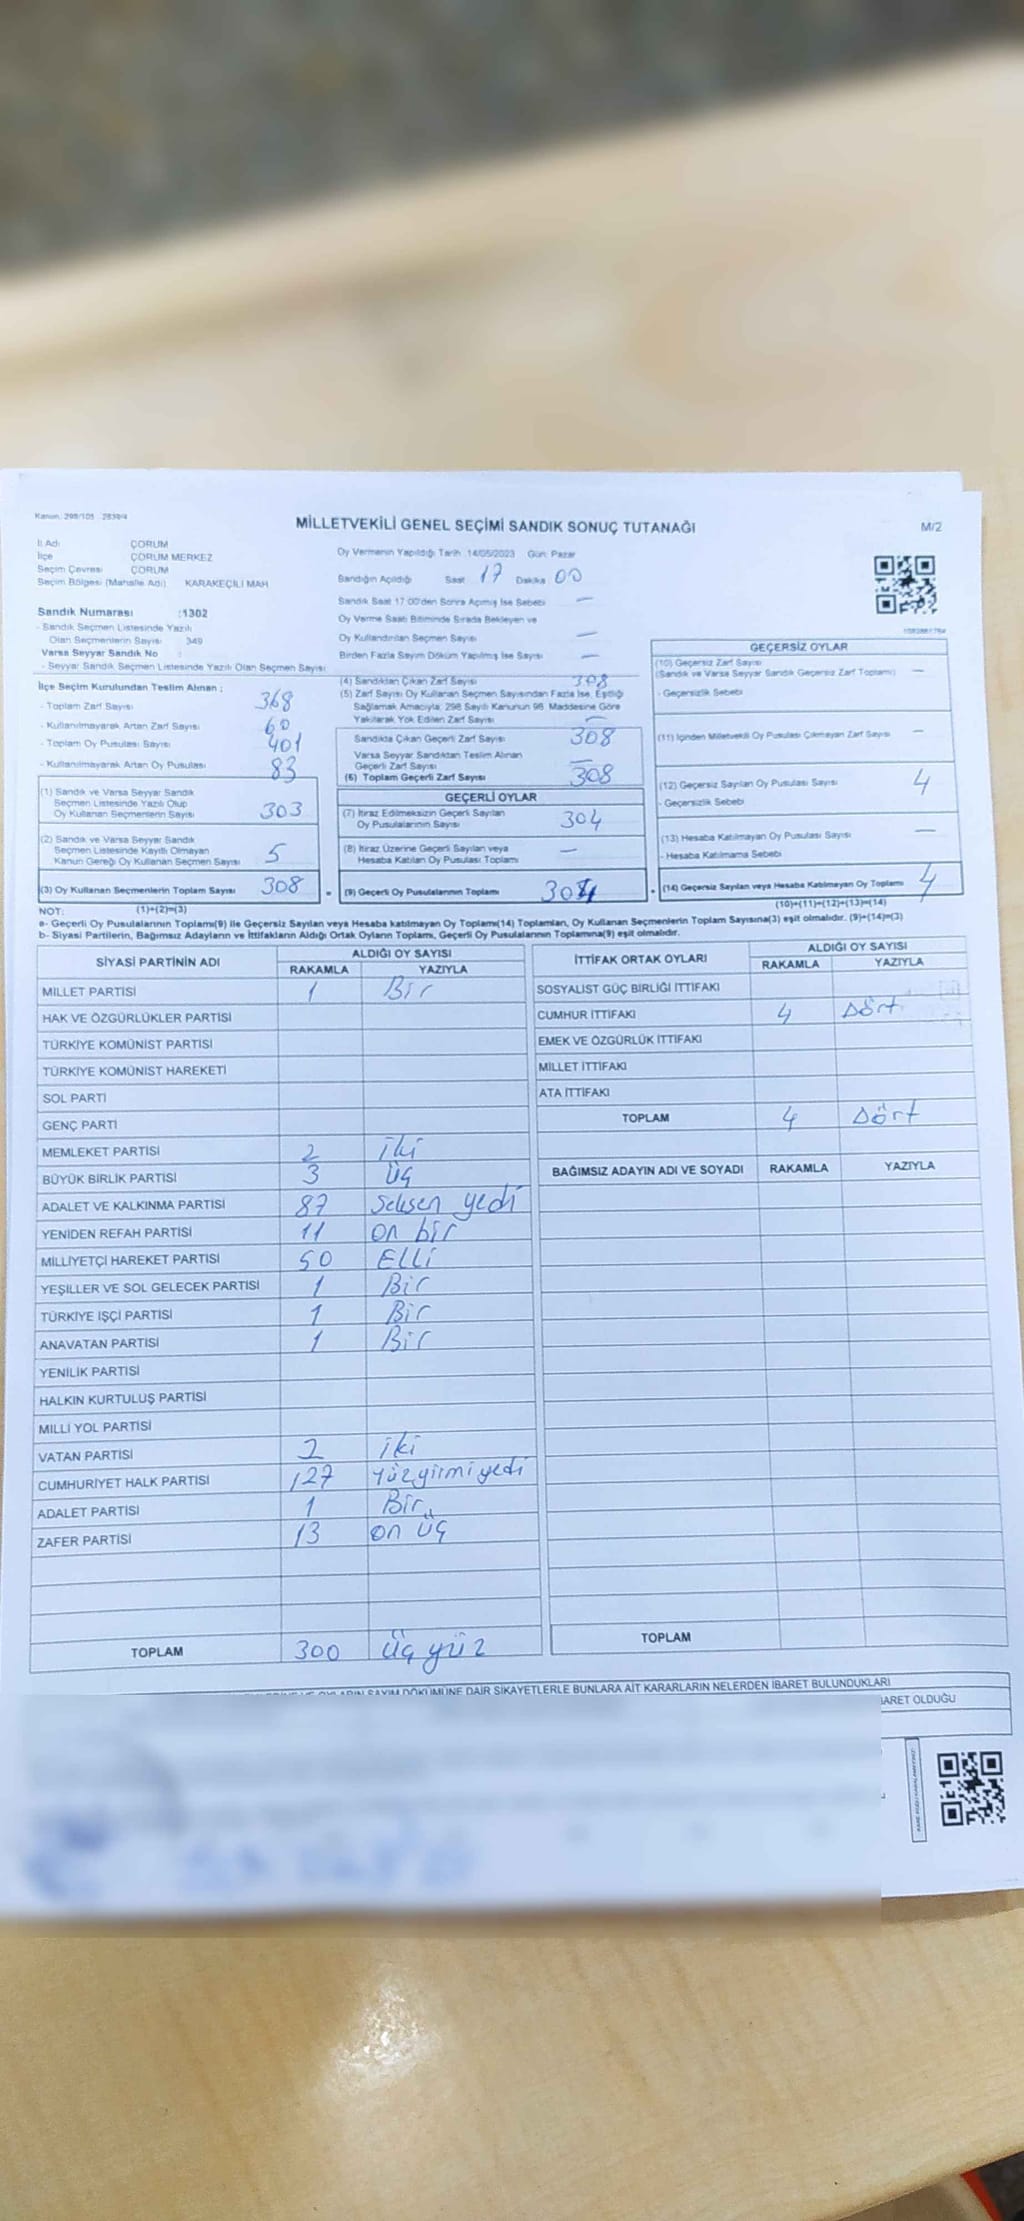 Kanun: 298/105 2839/4
MİLLETVEKİLİ GENEL SEÇİMİ SANDIK SONUÇ TUTANAĞI
M/2
İl Adı ÇORUM
İlçe ÇORUM MERKEZ
Seçim Çevresi ÇORUM
Seçim Bölgesi (Mahalle Adı) KARAKEÇİLİ MAH
Sandık Numarası :1302
- Sandık Seçmen Listesinde Yazılı
Olan Seçmenlerin Sayısı 349
Varsa Seyyar Sandık No :
- Seyyar Sandık Seçmen Listesinde Yazılı Olan Seçmen Sayısı
Oy Vermenin Yapıldığı Tarih 14/05/2023 Gün: Pazar
Sandığın Açıldığı Saat 17 Dakika 00
Sandık Saat 17:00'den Sonra Açılmış İse Sebebi —
Oy Verme Saati Bitiminde Sırada Bekleyen ve
Oy Kullandırılan Seçmen Sayısı —
Birden Fazla Sayım Döküm Yapılmış İse Sayısı —
İlçe Seçim Kurulundan Teslim Alınan ;
- Toplam Zarf Sayısı 368
- Kullanılmayarak Artan Zarf Sayısı 60
- Toplam Oy Pusulası Sayısı 401
- Kullanılmayarak Artan Oy Pusulası 83
(1) Sandık ve Varsa Seyyar Sandık
Seçmen Listesinde Yazılı Olup
Oy Kullanan Seçmenlerin Sayısı 303
(2) Sandık ve Varsa Seyyar Sandık
Seçmen Listesinde Kayıtlı Olmayan
Kanun Gereği Oy Kullanan Seçmen Sayısı 5
(3) Oy Kullanan Seçmenlerin Toplam Sayısı 308
(1)+(2)=(3)
(4) Sandıktan Çıkan Zarf Sayısı 308
(5) Zarf Sayısı Oy Kullanan Seçmen Sayısından Fazla İse, Eşitliği
Sağlamak Amacıyla; 298 Sayılı Kanunun 98. Maddesine Göre
Yakılarak Yok Edilen Zarf Sayısı —
Sandıkta Çıkan Geçerli Zarf Sayısı 308
Varsa Seyyar Sandıktan Teslim Alınan
Geçerli Zarf Sayısı —
(6) Toplam Geçerli Zarf Sayısı 308
GEÇERLİ OYLAR
(7) İtiraz Edilmeksizin Geçerli Sayılan
Oy Pusulalarının Sayısı 304
(8) İtiraz Üzerine Geçerli Sayılan veya
Hesaba Katılan Oy Pusulası Toplamı —
= (9) Geçerli Oy Pusulalarının Toplamı 304
GEÇERSİZ OYLAR
(10) Geçersiz Zarf Sayısı
(Sandık ve Varsa Seyyar Sandık Geçersiz Zarf Toplamı) —
- Geçersizlik Sebebi
(11) İçinden Milletvekili Oy Pusulası Çıkmayan Zarf Sayısı —
(12) Geçersiz Sayılan Oy Pusulası Sayısı 4
- Geçersizlik Sebebi
(13) Hesaba Katılmayan Oy Pusulası Sayısı —
- Hesaba Katılmama Sebebi
+ (14) Geçersiz Sayılan veya Hesaba Katılmayan Oy Toplamı 4
(10)+(11)+(12)+(13)=(14)
NOT:
a- Geçerli Oy Pusulalarının Toplamı(9) ile Geçersiz Sayılan veya Hesaba katılmayan Oy Toplamı(14) Toplamları, Oy Kullanan Seçmenlerin Toplam Sayısına(3) eşit olmalıdır. (9)+(14)=(3)
b- Siyasi Partilerin, Bağımsız Adayların ve İttifakların Aldığı Ortak Oyların Toplamı, Geçerli Oy Pusulalarının Toplamına(9) eşit olmalıdır.
SİYASİ PARTİNİN ADI ALDIĞI OY SAYISI
RAKAMLA YAZIYLA
MİLLET PARTİSİ 1 Bir
HAK VE ÖZGÜRLÜKLER PARTİSİ
TÜRKİYE KOMÜNİST PARTİSİ
TÜRKİYE KOMÜNİST HAREKETİ
SOL PARTİ
GENÇ PARTİ
MEMLEKET PARTİSİ 2 iki
BÜYÜK BİRLİK PARTİSİ 3 üç
ADALET VE KALKINMA PARTİSİ 87 Seksen yedi
YENİDEN REFAH PARTİSİ 11 on bir
MİLLİYETÇİ HAREKET PARTİSİ 50 Elli
YEŞİLLER VE SOL GELECEK PARTİSİ 1 Bir
TÜRKİYE İŞÇİ PARTİSİ 1 Bir
ANAVATAN PARTİSİ 1 Bir
YENİLİK PARTİSİ
HALKIN KURTULUŞ PARTİSİ
MİLLİ YOL PARTİSİ
VATAN PARTİSİ 2 iki
CUMHURİYET HALK PARTİSİ 127 Yüzyirmiyedi
ADALET PARTİSİ 1 Bir
ZAFER PARTİSİ 13 on üç
TOPLAM 300 üç yüz
İTTİFAK ORTAK OYLARI ALDIĞI OY SAYISI
RAKAMLA YAZIYLA
SOSYALİST GÜÇ BİRLİĞİ İTTİFAKI
CUMHUR İTTİFAKI 4 Dört
EMEK VE ÖZGÜRLÜK İTTİFAKI
MİLLET İTTİFAKI
ATA İTTİFAKI
TOPLAM 4 Dört
BAĞIMSIZ ADAYIN ADI VE SOYADI RAKAMLA YAZIYLA
TOPLAM
SAYIM DÖKÜMÜNE DAİR ŞİKAYETLERLE BUNLARA AİT KARARLARIN NELERDEN İBARET BULUNDUKLARI
OLDUĞU